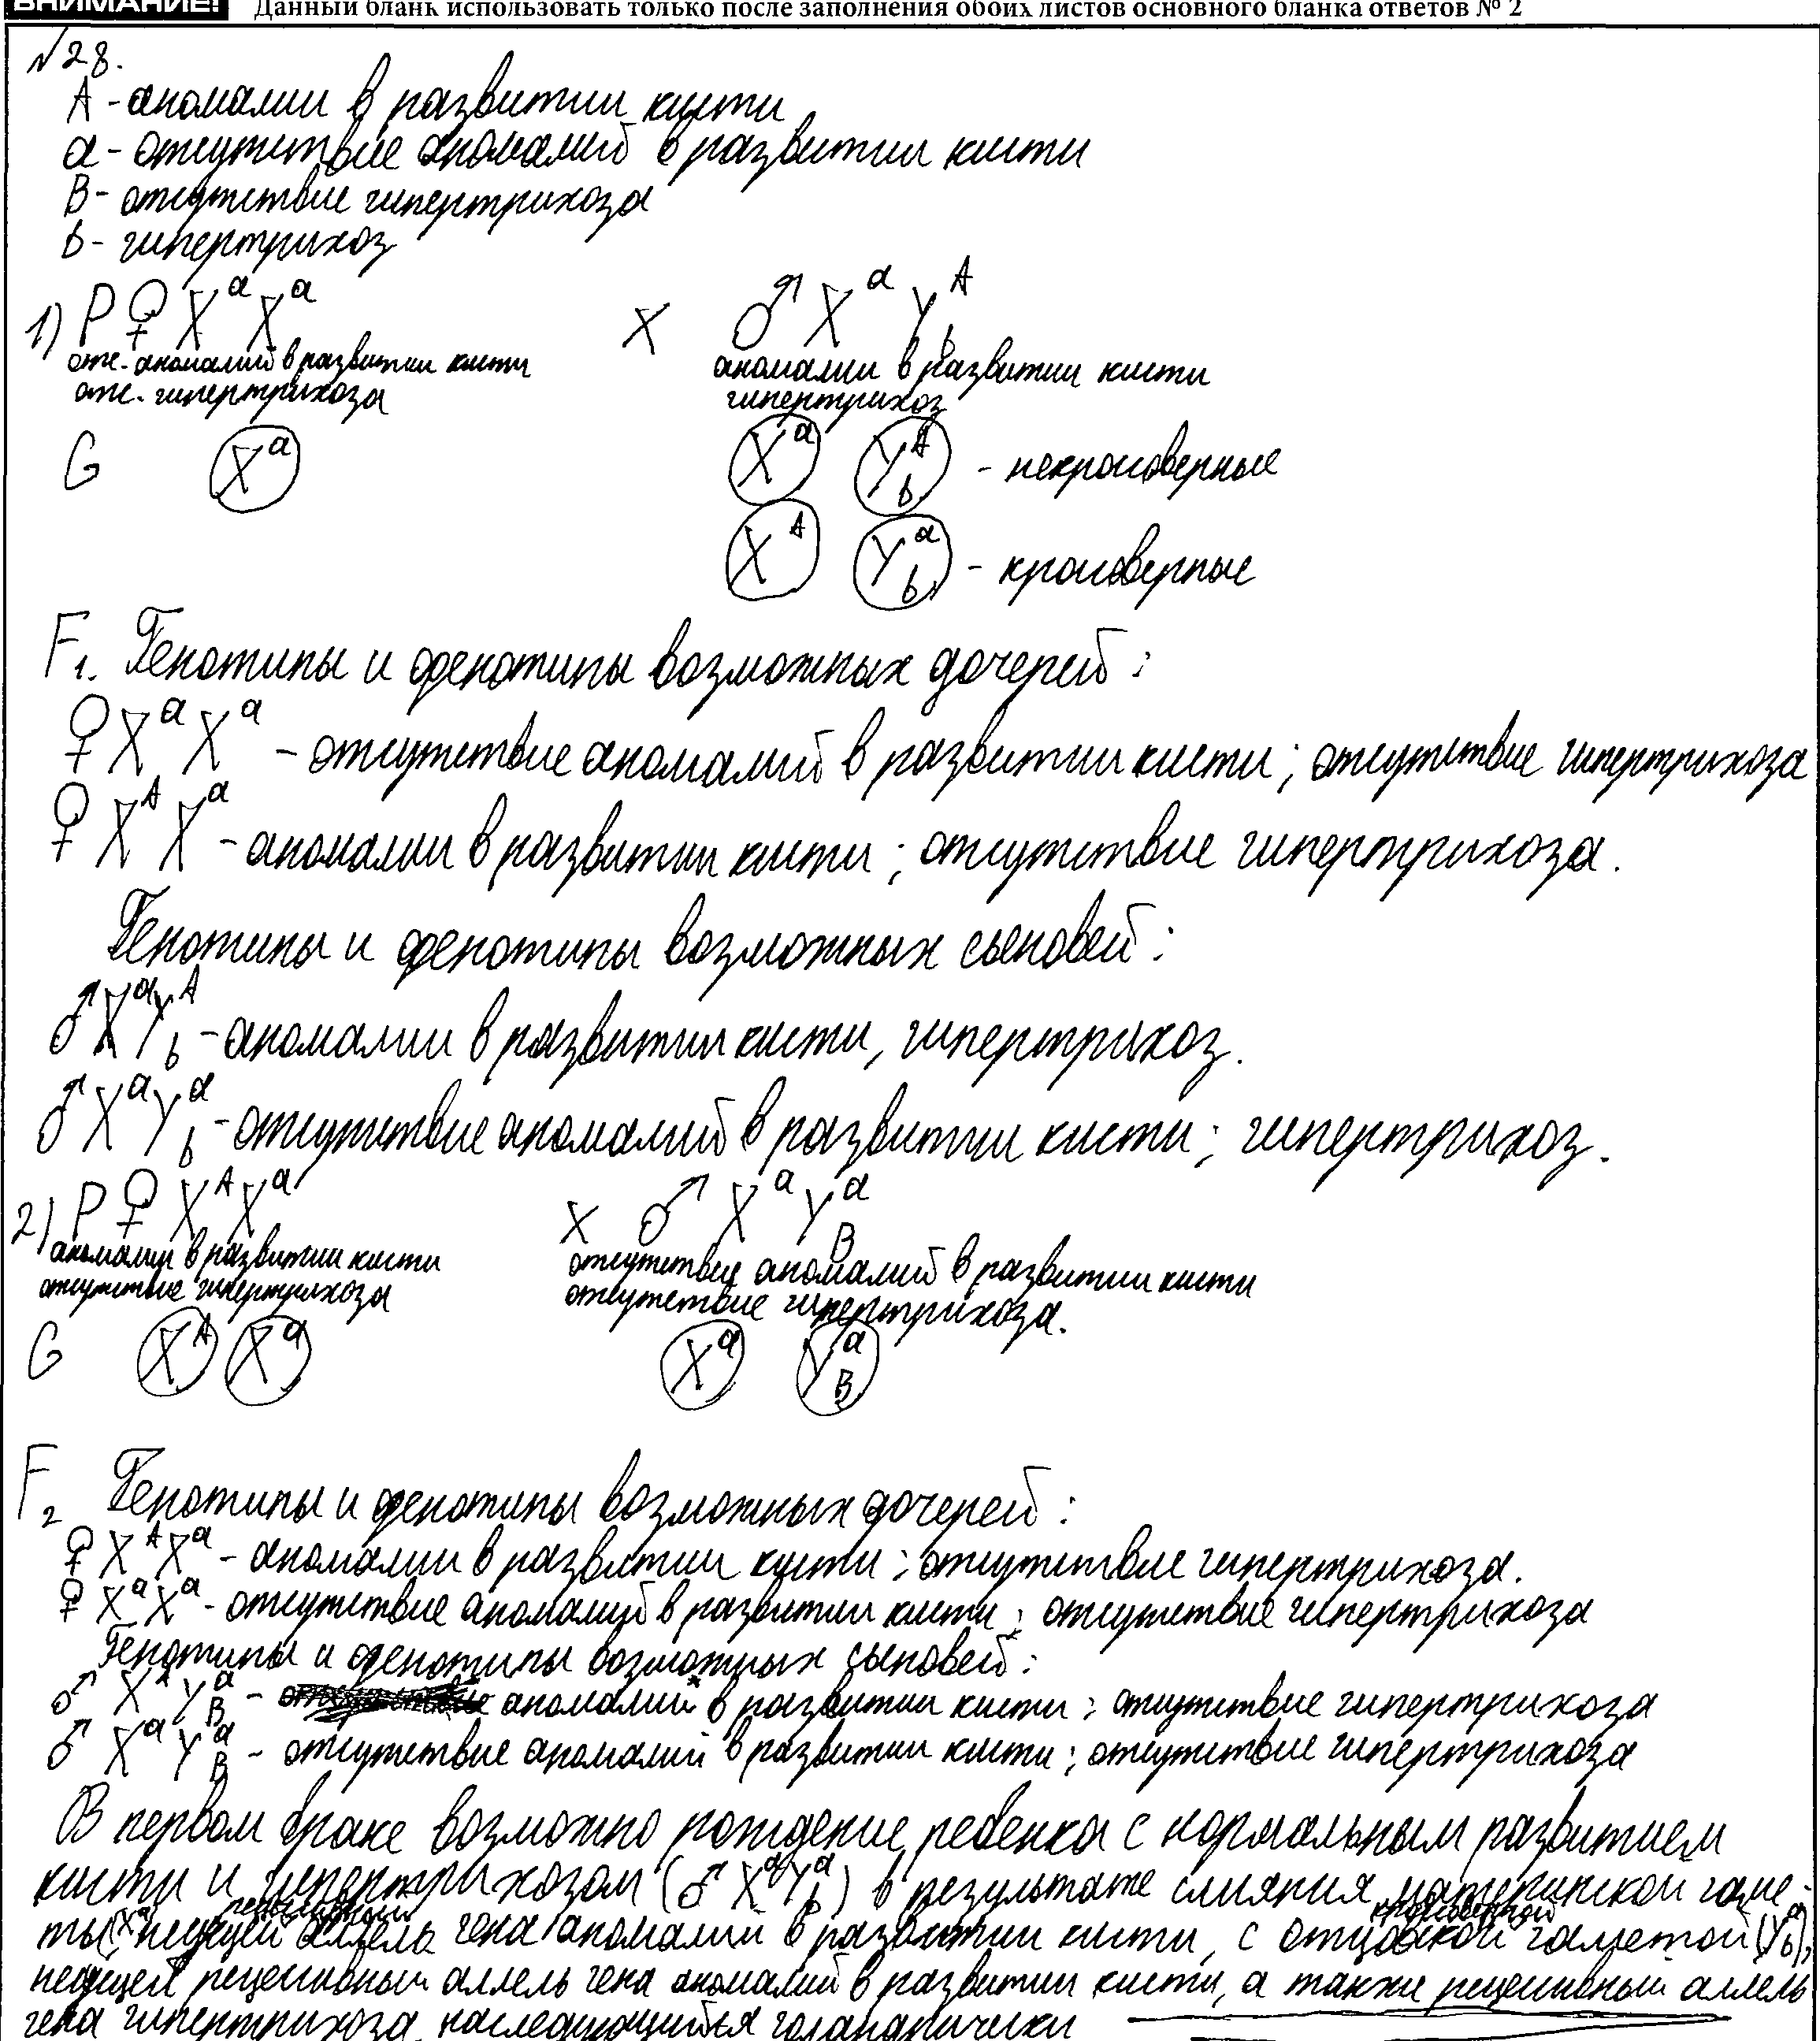 ВНИМАНИЕ! Данный бланк использовать только после заполнения обоих листов основного бланка ответов № 2
№28.
A - аномалии в развитии кисти
a - отсутствие аномалий в развитии кисти
B - отсутствие гипертрихоза
b - гипертрихоз
1) P ♀ XᵃXᵃ X ♂ XᵃYᴬb
отс. аномалий в развитии кисти аномалии в развитии кисти
отс. гипертрихоза гипертрихоз
G Xᵃ Xᵃ Yᴬb - некроссоверные
Xᴬ Yᵃb - кроссоверные
F₁. Генотипы и фенотипы возможных дочерей:
♀ XᵃXᵃ - отсутствие аномалий в развитии кисти; отсутствие гипертрихоза
♀ XᴬXᵃ - аномалии в развитии кисти; отсутствие гипертрихоза.
Генотипы и фенотипы возможных сыновей:
♂ XᵃYᴬb - аномалии в развитии кисти, гипертрихоз.
♂ XᵃYᵃb - отсутствие аномалий в развитии кисти; гипертрихоз.
2) P ♀ XᴬXᵃ X ♂ XᵃYᵃB
аномалии в развитии кисти отсутствие аномалий в развитии кисти
отсутствие гипертрихоза отсутствие гипертрихоза.
G Xᴬ Xᵃ Xᵃ YᵃB
F₂ Генотипы и фенотипы возможных дочерей:
♀ XᴬXᵃ - аномалии в развитии кисти; отсутствие гипертрихоза.
♀ XᵃXᵃ - отсутствие аномалий в развитии кисти; отсутствие гипертрихоза
Генотипы и фенотипы возможных сыновей:
♂ XᴬYᵃB - аномалии в развитии кисти; отсутствие гипертрихоза
♂ XᵃYᵃB - отсутствие аномалий в развитии кисти; отсутствие гипертрихоза
В первом браке возможно рождение ребенка с нормальным развитием
кисти и гипертрихозом (♂ XᵃYᵃb) в результате слияния материнской гаме-
ты (Xᵃ), несущей рецессивный аллель гена аномалий в развитии кисти, с отцовской кроссоверной гаметой (Yᵃb),
несущей рецессивный аллель гена аномалий в развитии кисти, а также рецессивный аллель
гена гипертрихоза, наследующийся голандрически